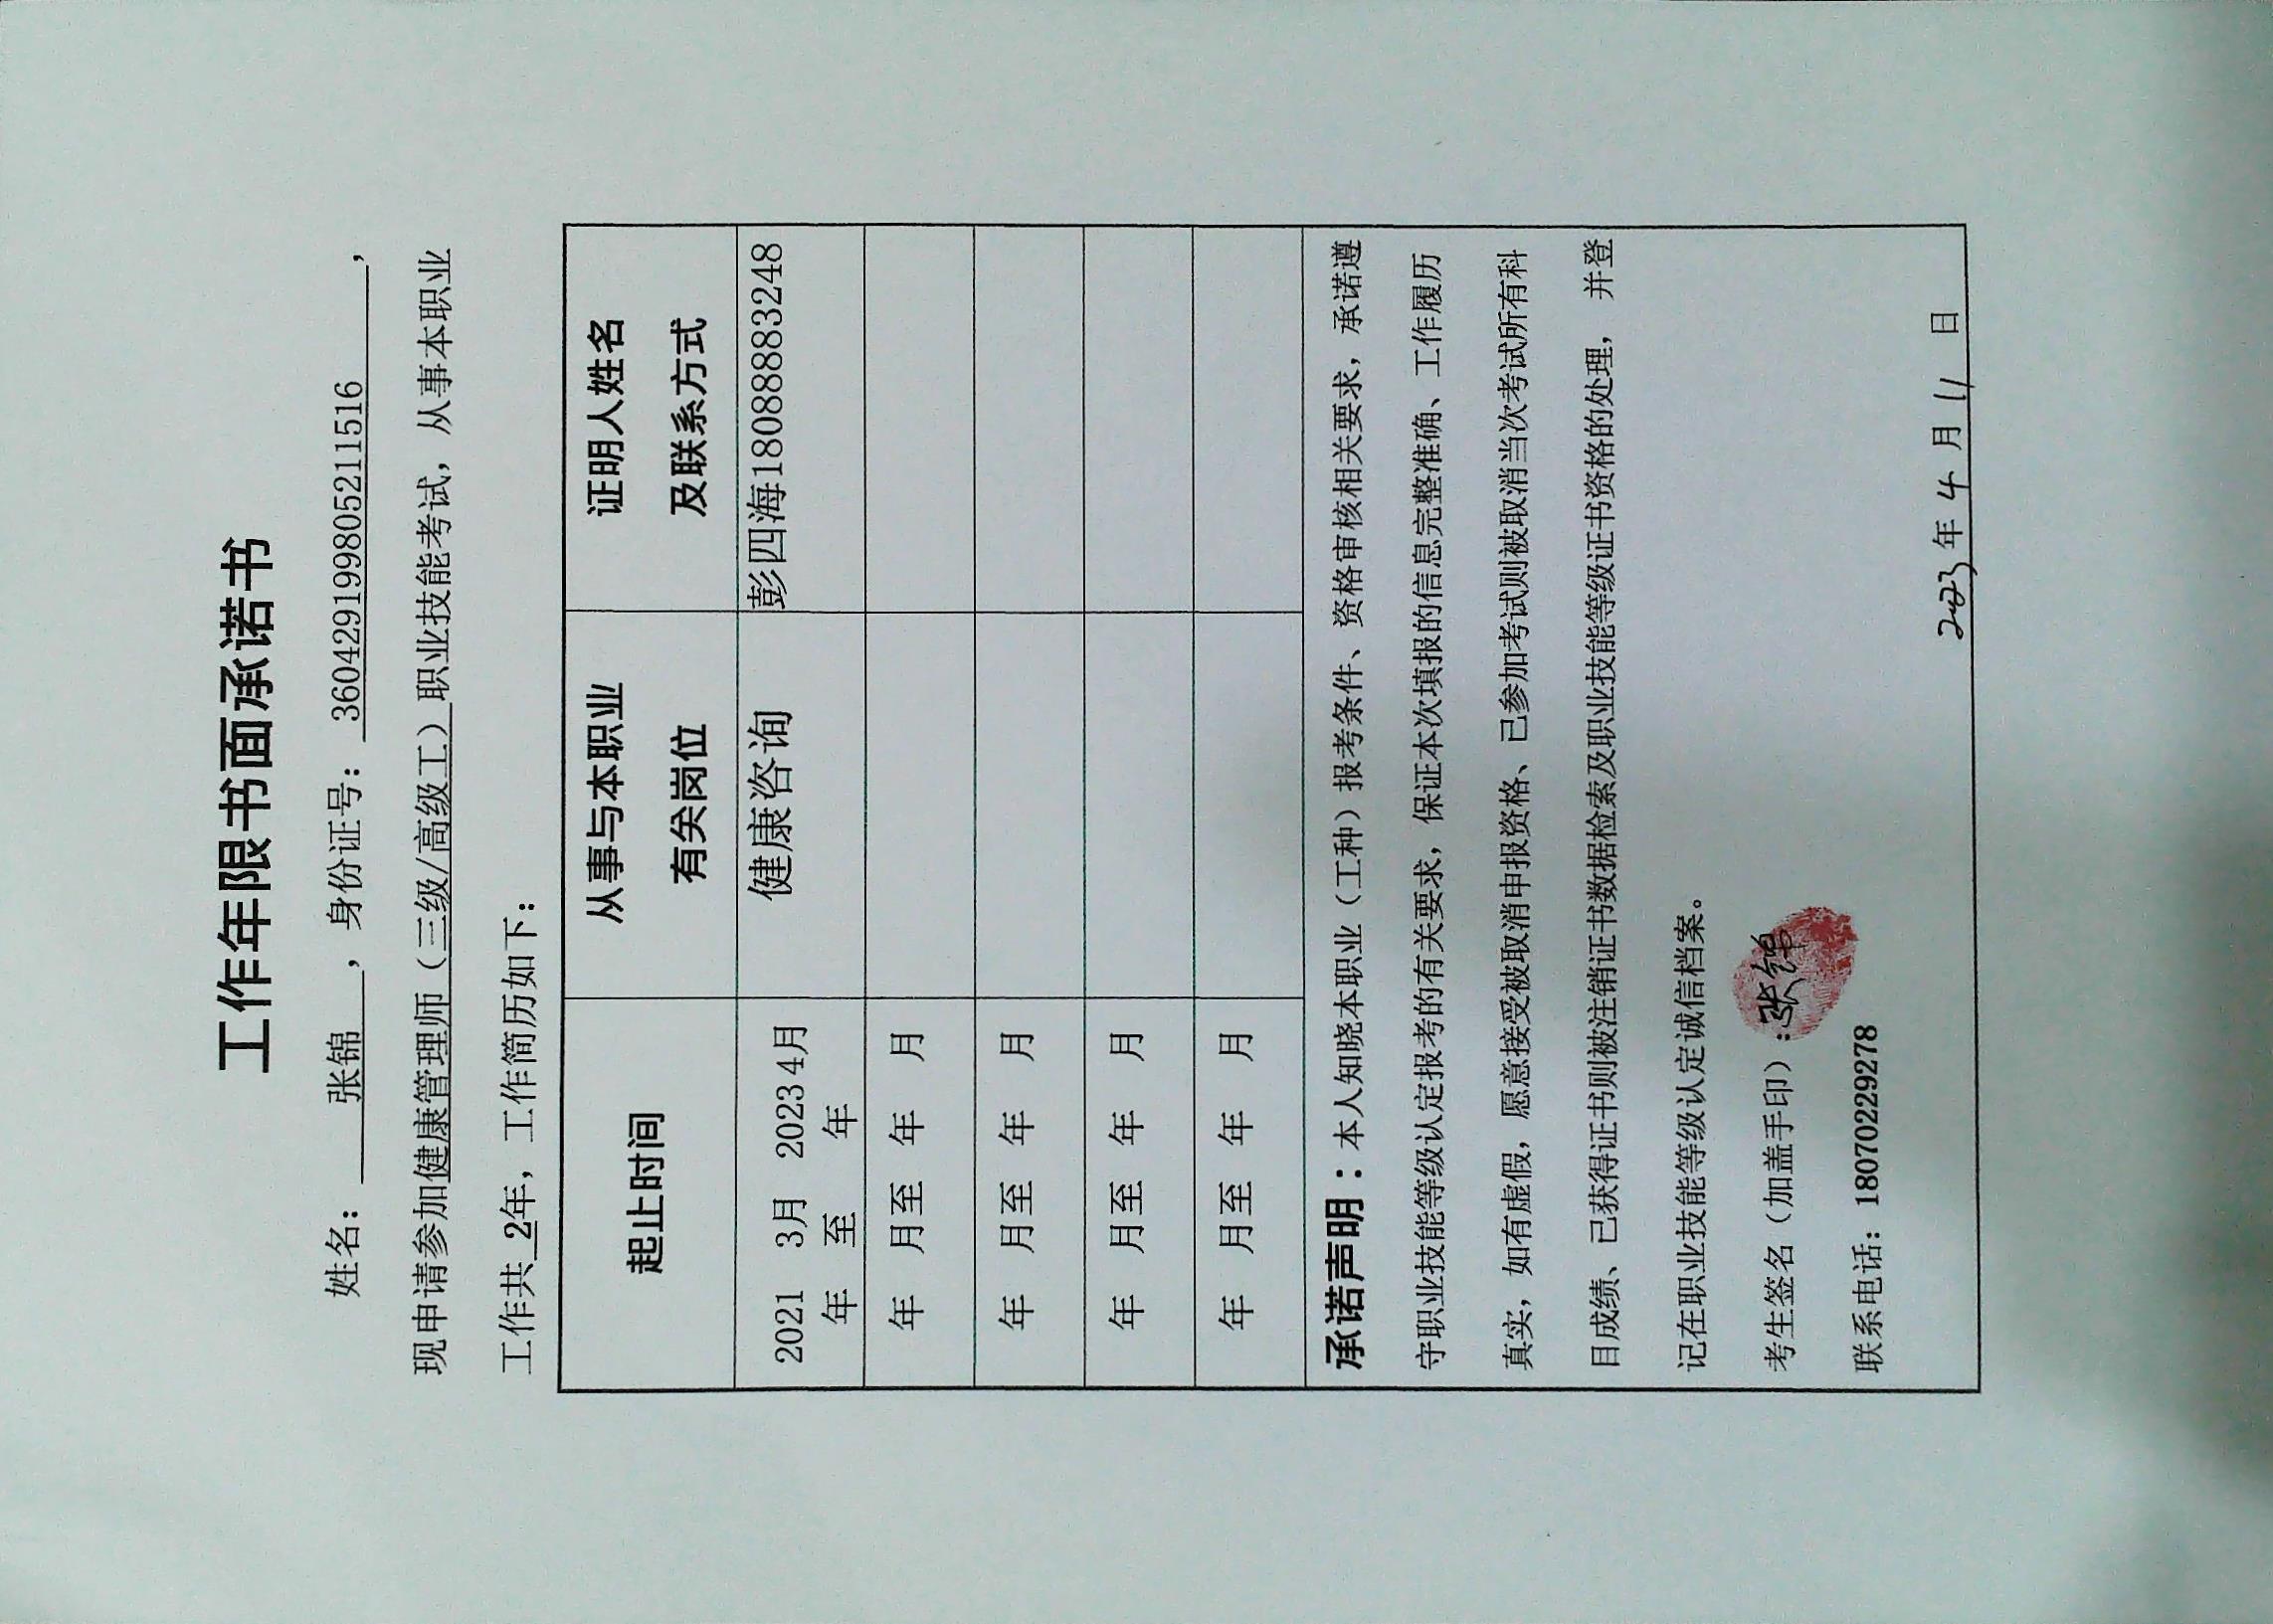 工作年限书面承诺书
姓名： 张锦 ，身份证号： 360429199805211516 ，
现申请参加健康管理师（三级/高级工）职业技能考试，从事本职业
工作共 2年，工作简历如下：
起止时间
从事与本职业
有关岗位
证明人姓名
及联系方式
2021 3月 2023 4月
年 至 年
健康咨询
彭四海18088883248
年 月至 年 月
年 月至 年 月
年 月至 年 月
年 月至 年 月
承诺声明：本人知晓本职业（工种）报考条件、资格审核相关要求，承诺遵
守职业技能等级认定报考的有关要求，保证本次填报的信息完整准确、工作履历
真实，如有虚假，愿意接受被取消申报资格、已参加考试则被取消当次考试所有科
目成绩、已获得证书则被注销证书数据检索及职业技能等级证书资格的处理，并登
记在职业技能等级认定诚信档案。
考生签名（加盖手印）：张锦
联系电话：18070229278
2023年 4 月 11 日